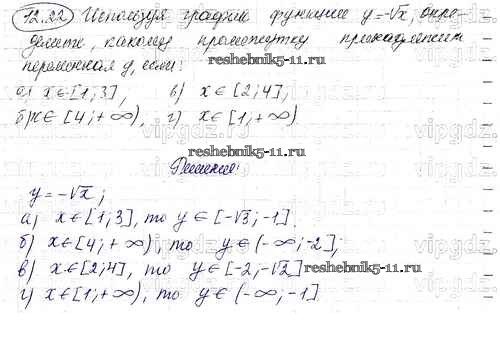 12.22 Используя график функции y=-√x, опре-
делите, какому промежутку принадлежит
переменная y, если:
а) x∈[1;3], в) x∈[2;4];
б) x∈[4;+∞), г) x∈[1;+∞)
reshebnik5-11.ru
Решение:
y=-√x;
а) x∈[1;3], то y∈[-√3;-1]
б) x∈[4;+∞), то y∈(-∞;-2];
в) x∈[2;4], то y∈[-2;-√2]
reshebnik5-11.ru
г) x∈[1;+∞), то y∈(-∞;-1]
vipgdz.ru
vipgdz.ru
vipgdz.ru